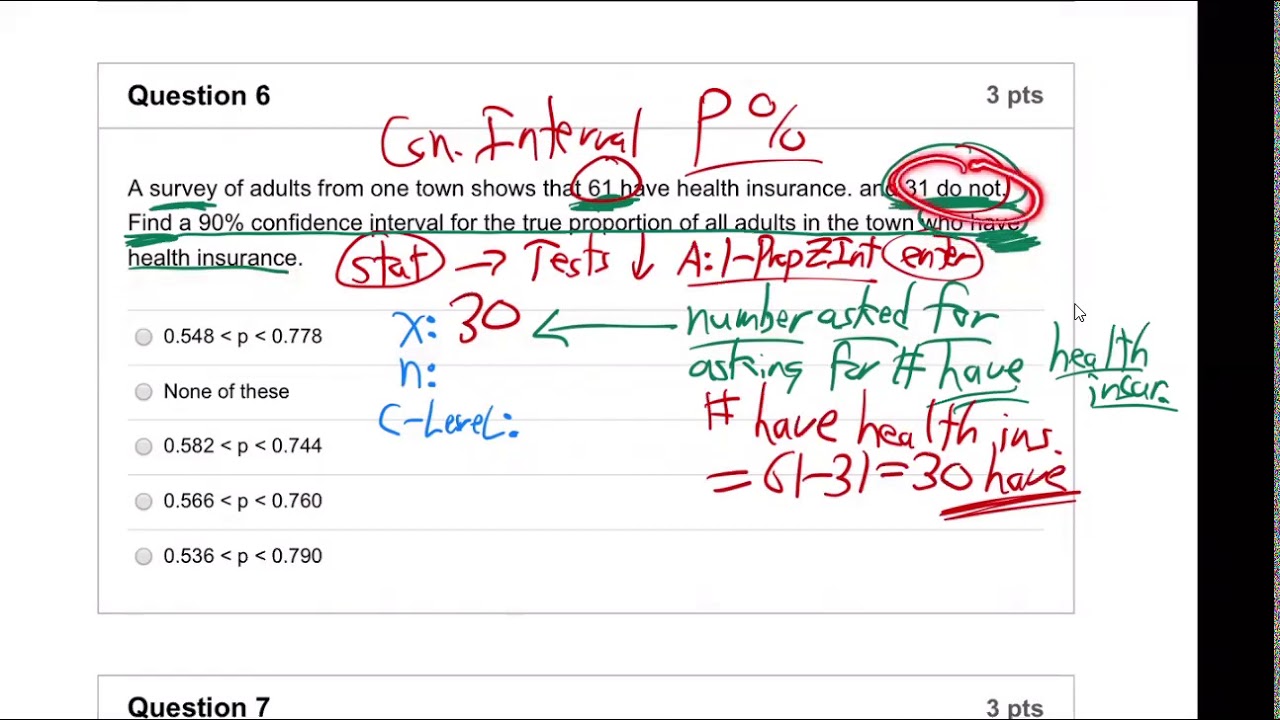 Question 6
3 pts
Con. Interval P %
A survey of adults from one town shows that 61 have health insurance. and 31 do not.
Find a 90% confidence interval for the true proportion of all adults in the town who have
health insurance.
stat → Tests ↓ A: 1-PropZInt enter
0.548 < p < 0.778
None of these
0.582 < p < 0.744
0.566 < p < 0.760
0.536 < p < 0.790
x: 30 ←
n:
C-Level:
number asked for
asking for # have health
insur.
# have health ins.
= 61-31 = 30 have
Question 7
3 pts